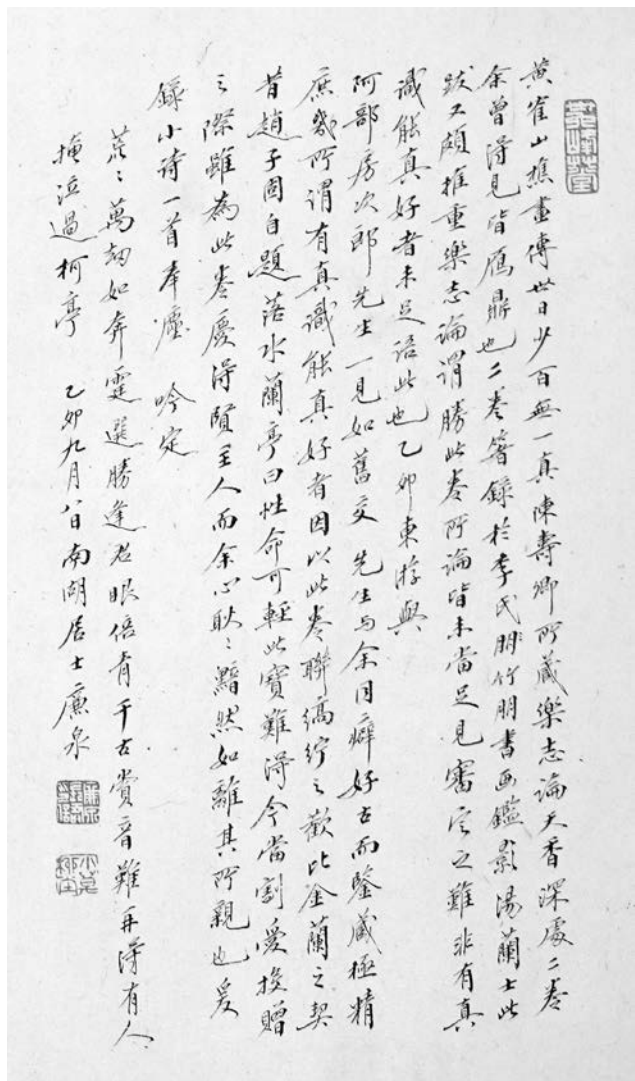 黄雀山樵畫傳世日少百無一真陳壽卿所藏樂志論天香深處二卷
余曾得見皆贗鼎也二卷箸錄於李氏竹朋書画鑑影湯蘭士此
跋又頗推重樂志論謂勝此卷所論皆未當足見審定之難非有真
識能真好者未足語此也乙卯東游與
阿部房次郎先生一見如舊交 先生与余同癖好古而鑒藏極精
庶幾所謂有真識能真好者因以此卷聯縞紵之歡比金蘭之契
昔趙子固自題落水蘭亭曰性命可輕此寶難得今當割愛投贈
之際雖為此卷慶得賢主人而余心耿〻黯然如離其所親也爰
錄小诗一首奉塵 吟定
茫〻萬劫如奔霆選勝逢君眼倍青千古賞音難再得有人
掩泣過柯亭 乙卯九月八日南湖居士廉泉